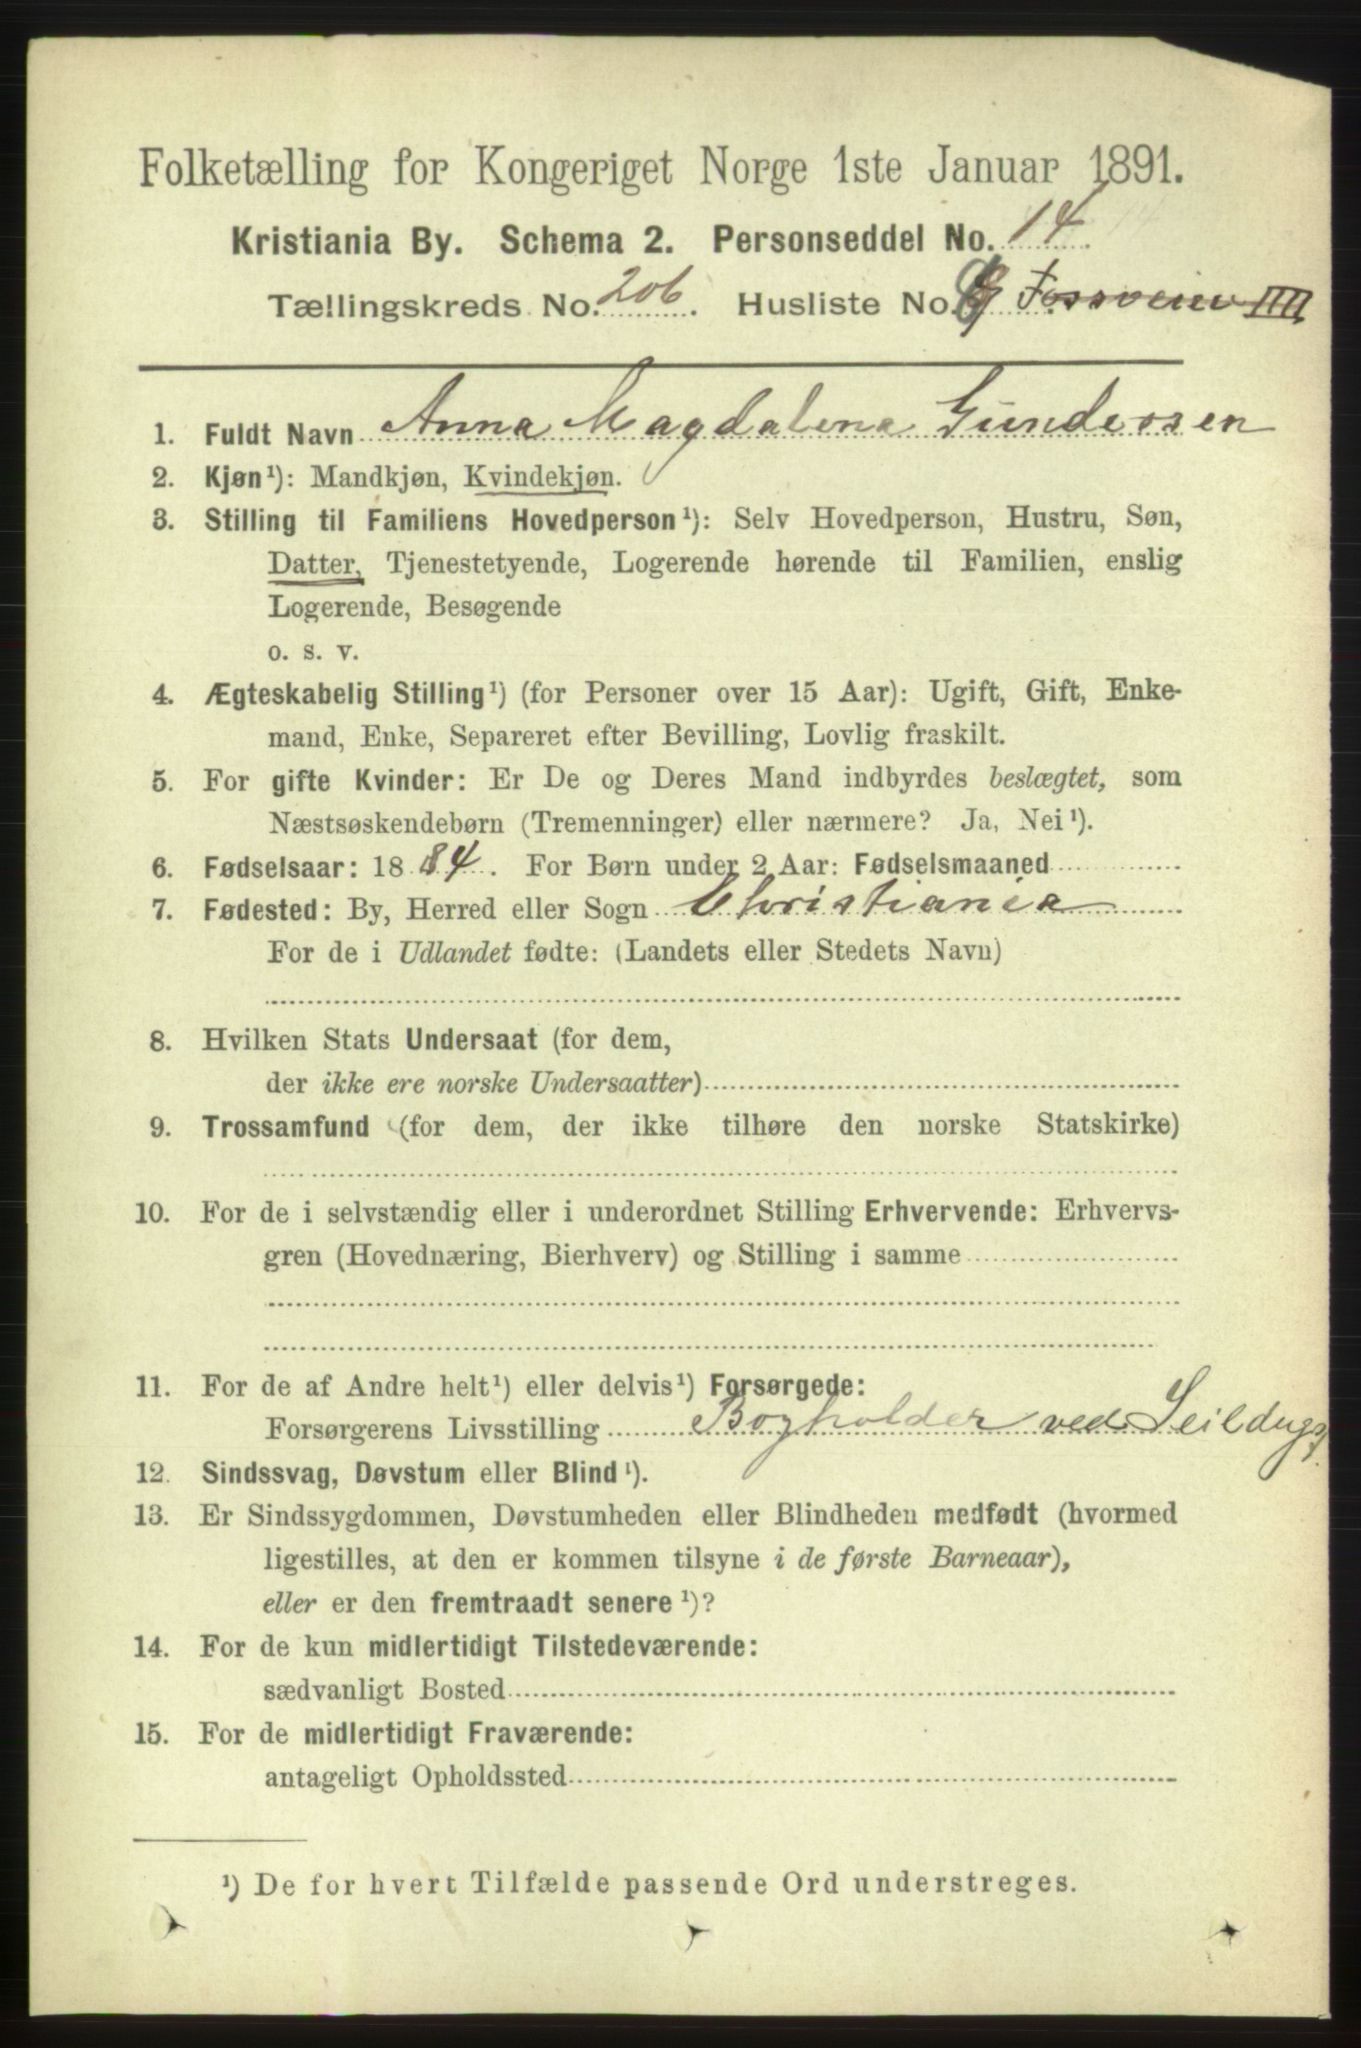 Folketælling for Kongeriget Norge 1ste Januar 1891.
Kristiania By. Schema 2. Personseddel No. 14
Tællingskreds No. 206. Husliste No.
1. Fuldt Navn Anna Magdalena Gundersen
2. Kjøn¹): Mandkjøn, Kvindekjøn.
3. Stilling til Familiens Hovedperson¹): Selv Hovedperson, Hustru, Søn,
Datter, Tjenestetyende, Logerende hørende til Familien, enslig
Logerende, Besøgende
o. s. v.
4. Ægteskabelig Stilling¹) (for Personer over 15 Aar): Ugift, Gift, Enke-
mand, Enke, Separeret efter Bevilling, Lovlig fraskilt.
5. For gifte Kvinder: Er De og Deres Mand indbyrdes beslægtet, som
Næstsøskendebørn (Tremenninger) eller nærmere? Ja, Nei¹).
6. Fødselsaar: 1884. For Børn under 2 Aar: Fødselsmaaned
7. Fødested: By, Herred eller Sogn Christiania
For de i Udlandet fødte: (Landets eller Stedets Navn)
8. Hvilken Stats Undersaat (for dem,
der ikke ere norske Undersaatter)
9. Trossamfund (for dem, der ikke tilhøre den norske Statskirke)
10. For de i selvstændig eller i underordnet Stilling Erhvervende: Erhvervs-
gren (Hovednæring, Bierhverv) og Stilling i samme
11. For de af Andre helt¹) eller delvis¹) Forsørgede:
Forsørgerens Livsstilling Bogholder ved Seildugsf.
12. Sindssvag, Døvstum eller Blind¹).
13. Er Sindssygdommen, Døvstumheden eller Blindheden medfødt (hvormed
ligestilles, at den er kommen tilsyne i de første Barneaar),
eller er den fremtraadt senere¹)?
14. For de kun midlertidigt Tilstedeværende:
sædvanligt Bosted
15. For de midlertidigt Fraværende:
antageligt Opholdssted
¹) De for hvert Tilfælde passende Ord understreges.